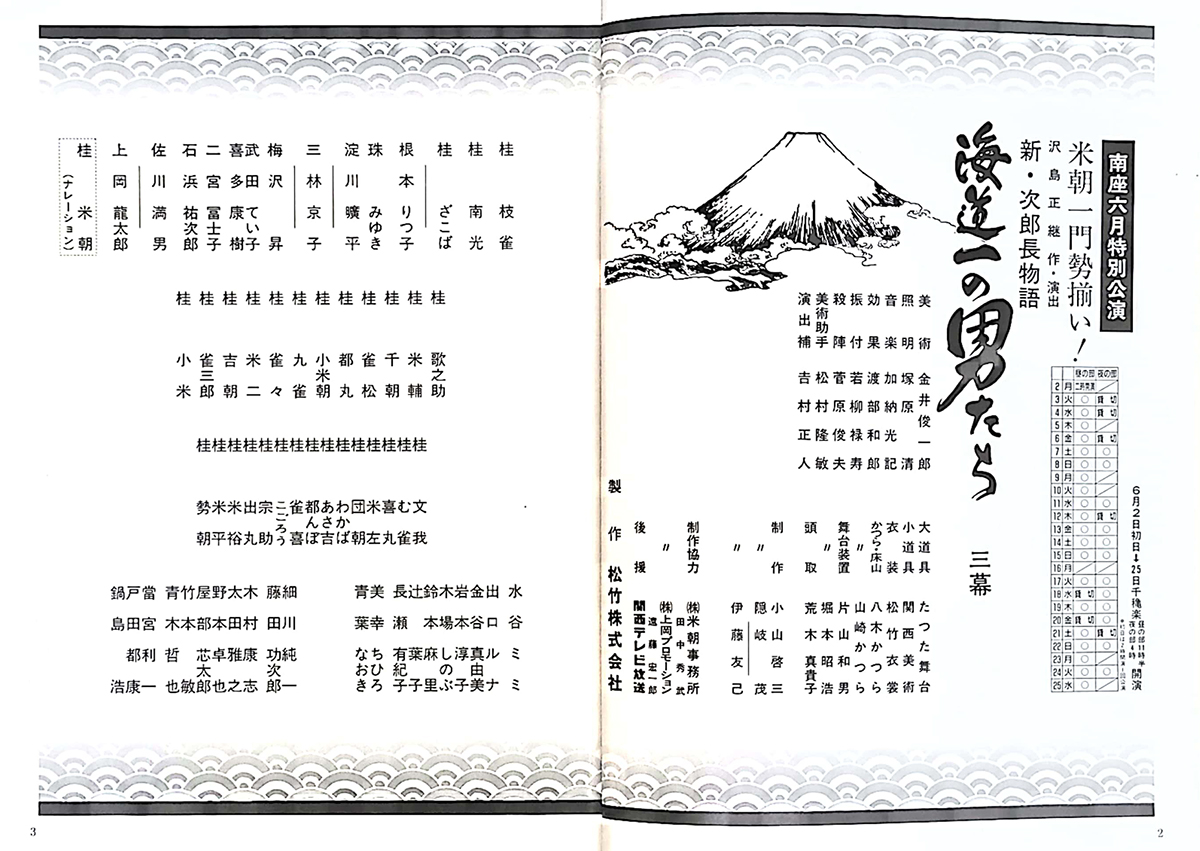 南座六月特別公演
米朝一門勢揃い!
沢島正継 作・演出
新・次郎長物語
海道一の男たち 三幕
6月2日初日→25日千穐楽 昼の部11時半 夜の部4時 開演
*2日は2時開演・1回公演
昼の部 夜の部
2 月 二時開演 ／
3 火 ○ 貸切
4 水 ○ 貸切
5 木 ○ ／
6 金 ○ 貸切
7 土 ○ ○
8 日 ○ ○
9 月 ○ ／
10 火 ○ ／
11 水 ○ ○
12 木 ○ 貸切
13 金 ○ ○
14 土 ○ ○
15 日 ○ ○
16 月 ／ ／
17 火 ○ ○
18 水 貸切 ○
19 木 ○ ○
20 金 貸切 ○
21 土 ○ 貸切
22 日 ○ ○
23 月 ○ ／
24 火 ○ ○
25 水 ○ ／
美術 金井俊一郎
照明 塚原清
音楽 加納光記
効果 渡部和郎
振付 若柳禄寿
殺陣 菅原俊夫
美術助手 松村隆敏
演出補 吉村正人
大道具 たつた舞台
小道具 関西美術
衣装 松竹衣裳
かつら・床山 八木かつら
山崎かつら
舞台装置 片山和男
〃 堀本昭浩
頭取 荒木真貴子
制作 小山啓三
〃 隠岐茂
〃 伊藤友己
制作協力 ㈱米朝事務所
田中秀武
〃 ㈱上岡プロモーション
遠藤宏一郎
後援 関西テレビ放送
製作 松竹株式会社
2
桂枝雀
桂南光
桂ざこば
根本りつ子
珠みゆき
淀川曠平
三林京子
梅沢昇
武田てい子
喜多康樹
二宮冨士子
石浜祐次郎
佐川満男
上岡龍太郎
桂米朝
(ナレーション)
桂歌之助
桂米輔
桂千朝
桂雀松
桂都丸
桂小米朝
桂九雀
桂雀々
桂米二
桂吉朝
桂雀三郎
桂小米
桂文我
桂む雀
桂喜丸
桂米左
桂団朝
桂わかば
桂あさ吉
桂都んぼ
桂雀喜
桂こごろう
桂宗助
桂出丸
桂米裕
桂米平
桂勢朝
水谷ミミ
出口ルナ
金谷真由美
岩本淳子
木場しのぶ
鈴本麻里
辻葉子
長瀬有紀子
美幸ちひろ
青葉なおき
細川純一
藤田功次郎
木村康志
太田雅之
野本卓也
屋部芯太郎
竹本敏
青木哲也
當宮利一
戸田都康
鍋島浩
3